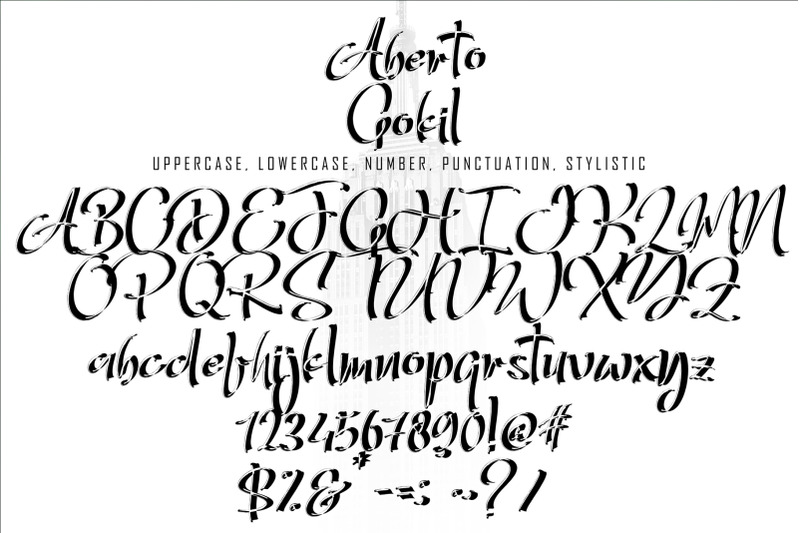 Aberto
Gokil
UPPERCASE, LOWERCASE, NUMBER, PUNCTUATION, STYLISTIC
ABCDEFGHIJKLMN
OPQRSTUVWXYZ
abcdefhijklmnopqrstuvwxyz
1234567890!@#
$%&*-=:~?/